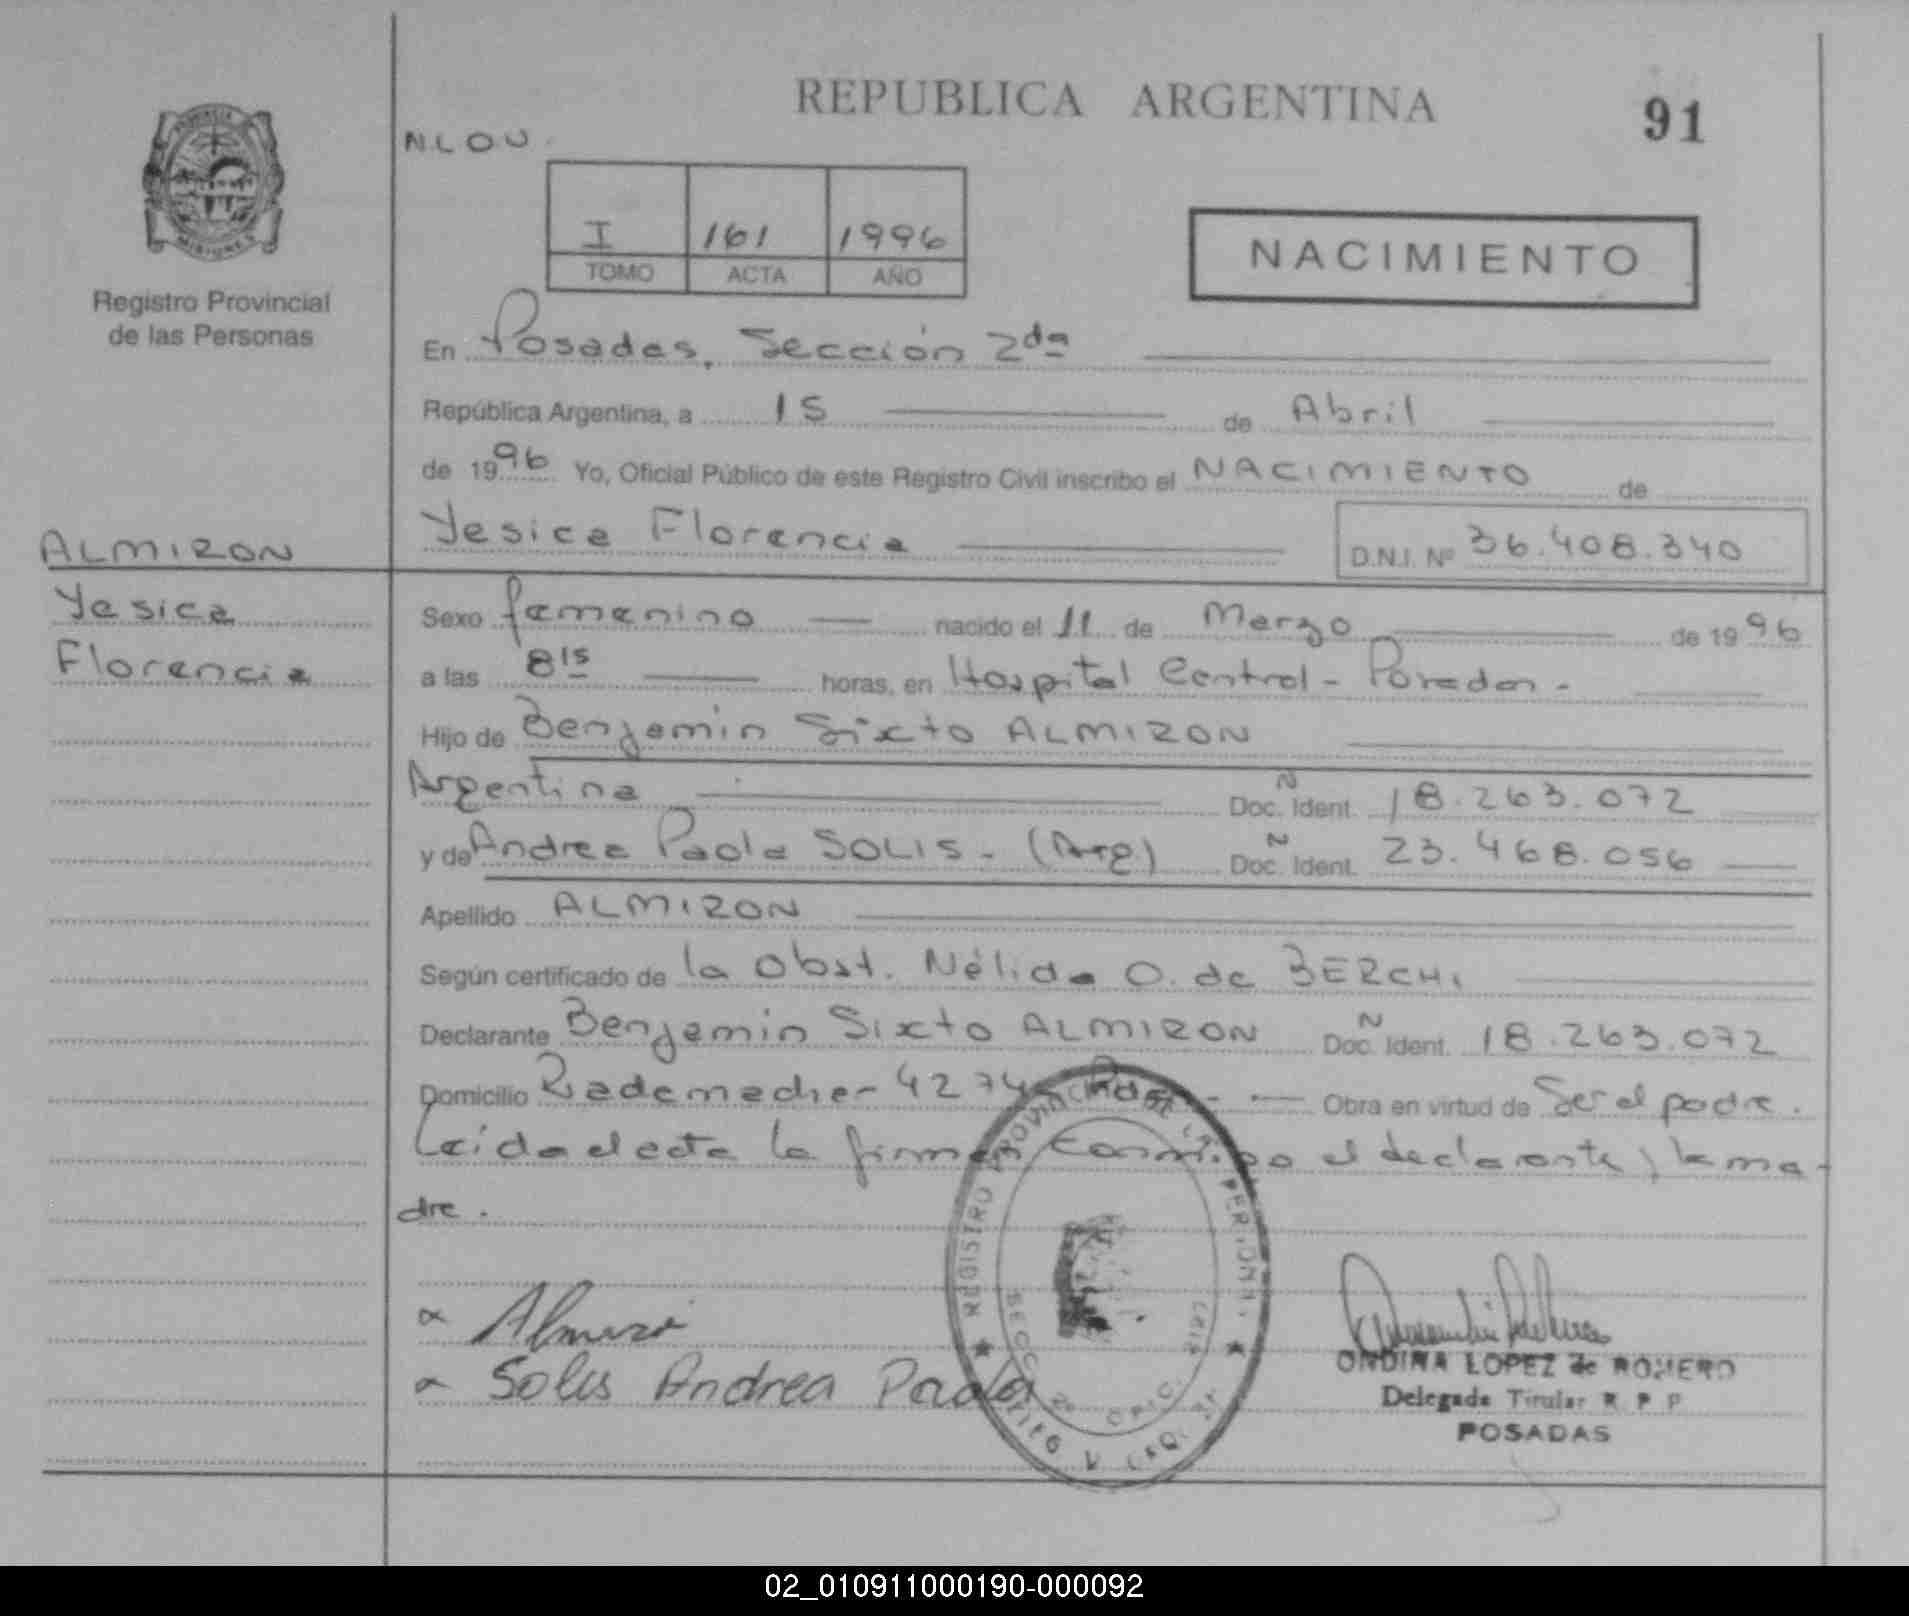 REPUBLICA ARGENTINA
91
N.L.O.U.
I 161 1996
TOMO ACTA AÑO
NACIMIENTO
MISIONES
Registro Provincial
de las Personas
En Posadas, Sección 2da
República Argentina, a 15 de Abril
de 1996 Yo, Oficial Público de este Registro Civil inscribo el NACIMIENTO de
Yesica Florencia D.N.I. Nº 36.408.340
ALMIRON
Yesica
Florencia
Sexo femenino nacido el 11 de Marzo de 1996
a las 8 15 horas, en Hospital Central - Posadas -
Hijo de Benjamin Sixto ALMIRON
Argentina Doc. Ident. 18.263.072
y de Andrea Paola SOLIS - (Arg) Doc. Ident. 23.468.056
Apellido ALMIRON
Según certificado de la Obst. Nélida O. de BERCHI
Declarante Benjamin Sixto ALMIRON Doc. Ident. 18.263.072
Domicilio Rademacher 4274 - Obra en virtud de Ser el padre.
Leida el acta la firman conmigo el declarante y la ma-
dre.
Solis Andrea Paola
REGISTRO PROVINCIAL DE LAS PERSONAS
ONDINA LOPEZ de ROMERO
Delegada Titular R. P. P.
POSADAS
02_010911000190-000092